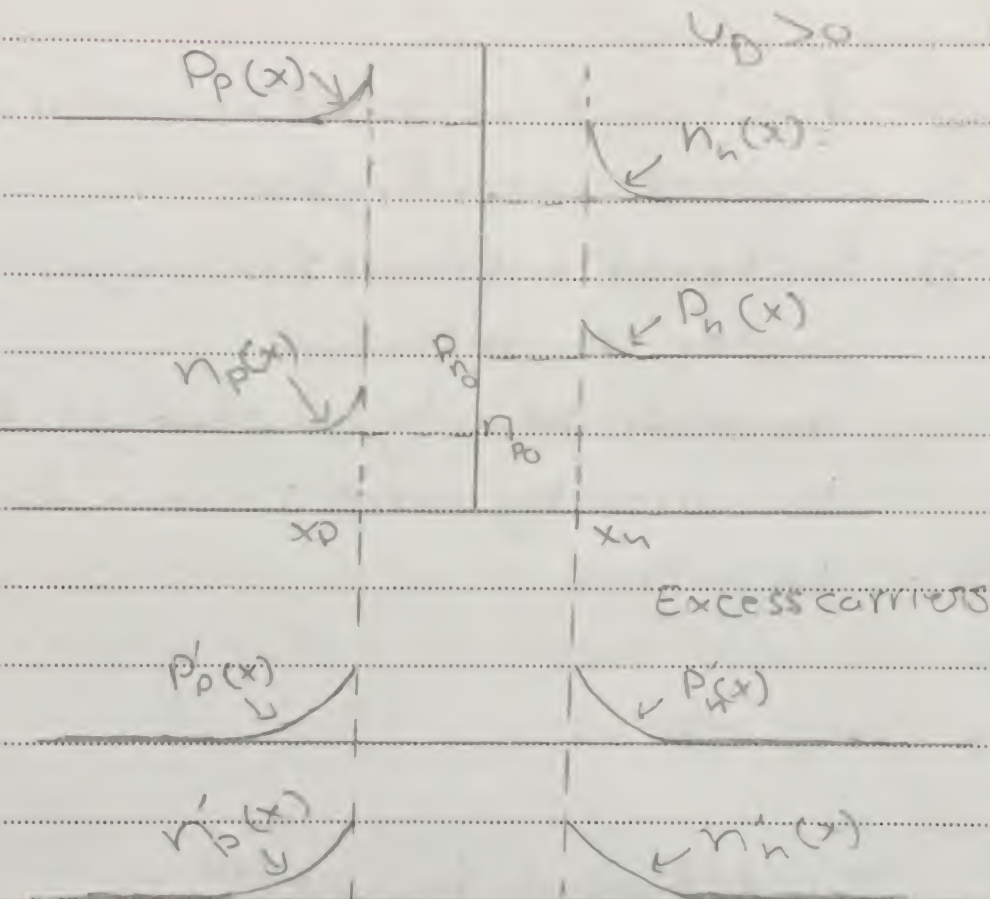 υ_D > 0
P_p(x)
n_n(x)
P_n(x)
n_p(x)
P_n₀
n_p₀
x_p
x_n
Excess carriers
P'_p(x)
P'_n(x)
n'_p(x)
n'_n(x)